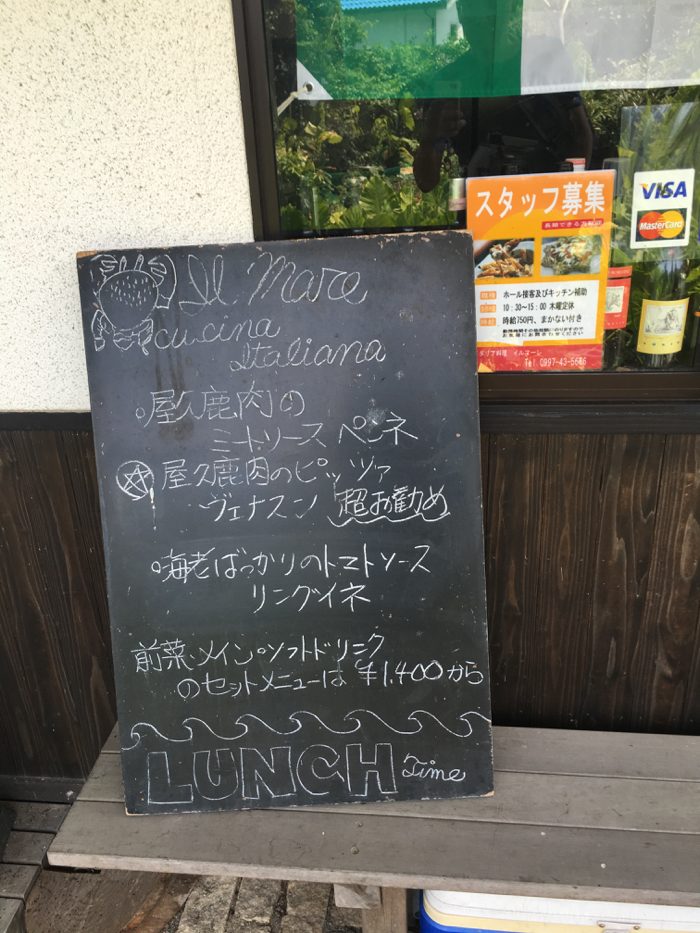 Il Mare
cucina
Italiana
屋久鹿肉の
ミートソース ペンネ
屋久鹿肉のピッツァ
ヴェナスン 超お勧め
海老ばっかりのトマトソース
リングイネ
前菜・メイン・ソフトドリンク
のセットメニューは ¥1,400から
LUNCH Time
スタッフ募集
長期できる方歓迎
ホール接客及びキッチン補助
10:30~15:00 木曜定休
時給750円、まかない付き
Tel 0997-43-5666
VISA
MasterCard